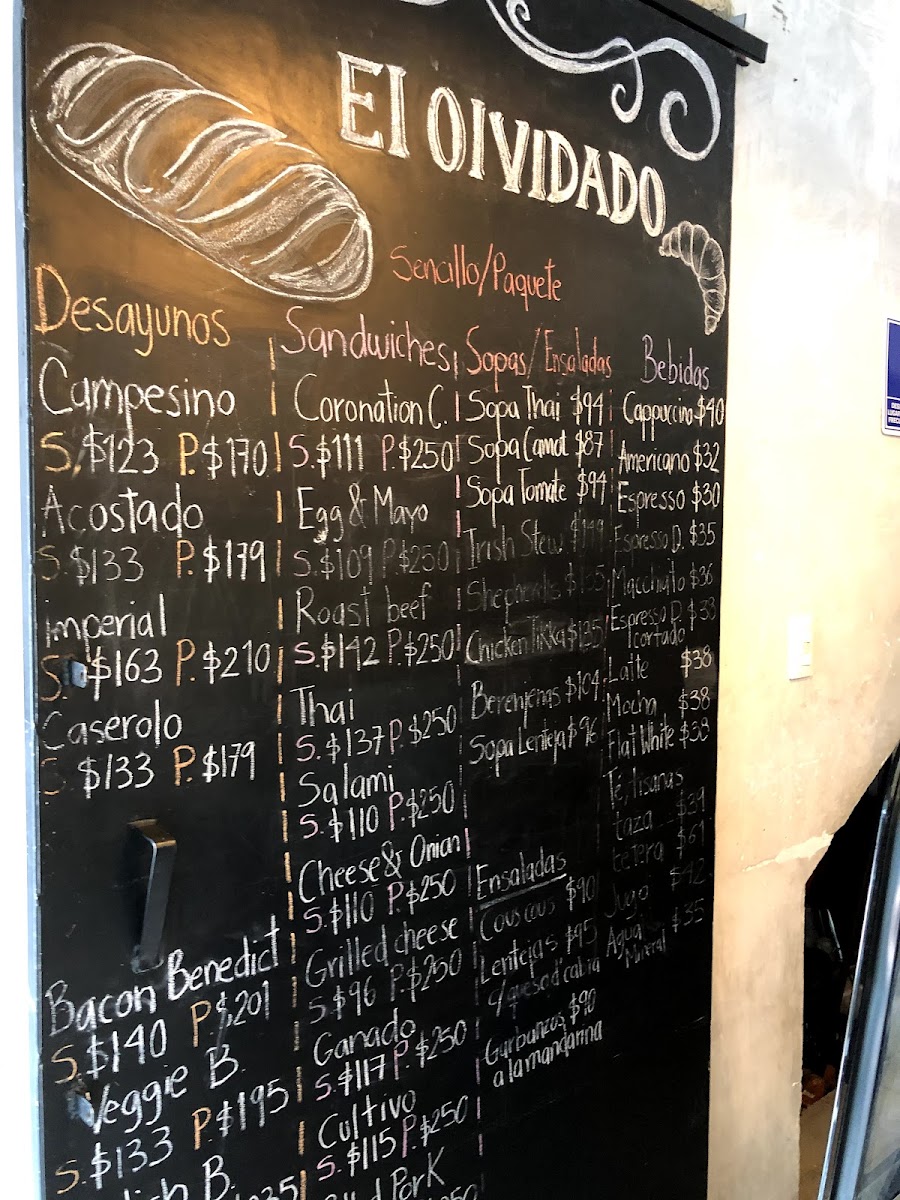 El OlVIDADO
Sencillo/Paquete
Desayunos
Campesino
S. $123 P. $170
Acostado
S. $133 P. $179
imperial
S. $163 P. $210
Caserolo
S. $133 P. $179
Bacon Benedict
S. $140 P. $201
Veggie B.
S. $133 P. $195
Sandwiches
Coronation C.
S. $111 P. $250
Egg & Mayo
S. $109 P. $250
Roast beef
S. $142 P. $250
Thai
S. $137 P. $250
Salami
S. $110 P. $250
Cheese & Onion
S. $110 P. $250
Grilled cheese
S. $96 P. $250
Ganado
S. $117 P. $250
Cultivo
S. $115 P. $250
Pork
Sopas/Ensaladas
Sopa Thai $94
Sopa Camot $87
Sopa Tomate $94
Irish Stew $149
Shepherds $135
Chicken Tikka $135
Berenjenas $104
Sopa Lenteja $96
Ensaladas
Cous cous $90
Lentejas $95
c/queso d'cabra
Garbanzos $90
a la mandarina
Bebidas
Cappuccino $40
Americano $32
Espresso $30
Espresso D. $35
Macchiato $36
Espresso D. $38
cortado
Latte $38
Mocha $38
Flat White $38
Té, tisanas
taza $39
tetera $61
Jugo $42
Agua $35
Mineral